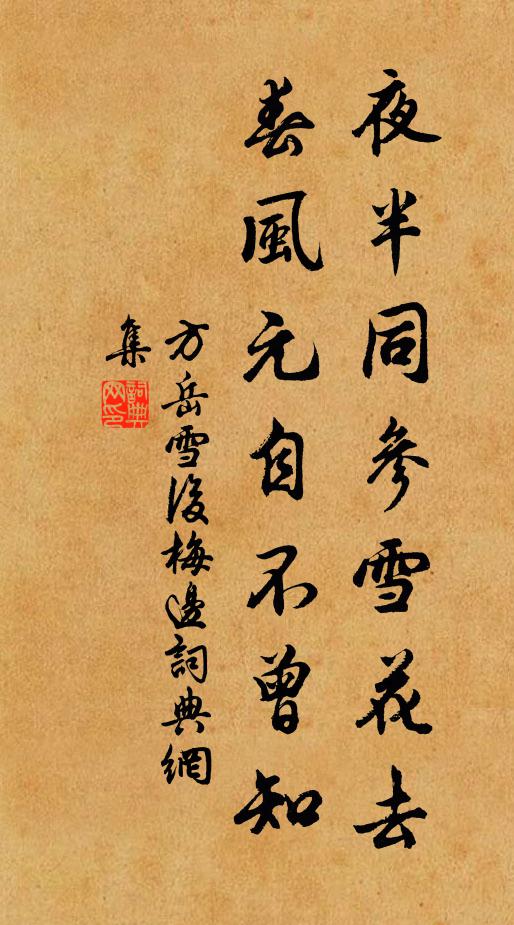 夜半同參雪花去
春風元自不曾知
方岳雪後梅邊詞典網
集
詞典
网印